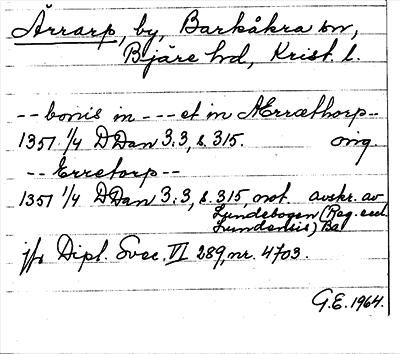 Ärrarp, by, Barkåkra sn,
Bjäre hd, Krist. l.
-- bonis in --- et in Ærræthorp --
1351 1/4 D Dan 3:3, s. 315. orig.
-- Erretorp --
1351 1/4 D Dan 3:3, s. 315, not. avskr. av
Lundebogen (Reg. eccl.
Lundensis) Ba
jfr Dipl. Svec. VI 289, nr. 4703.
G.E. 1964.